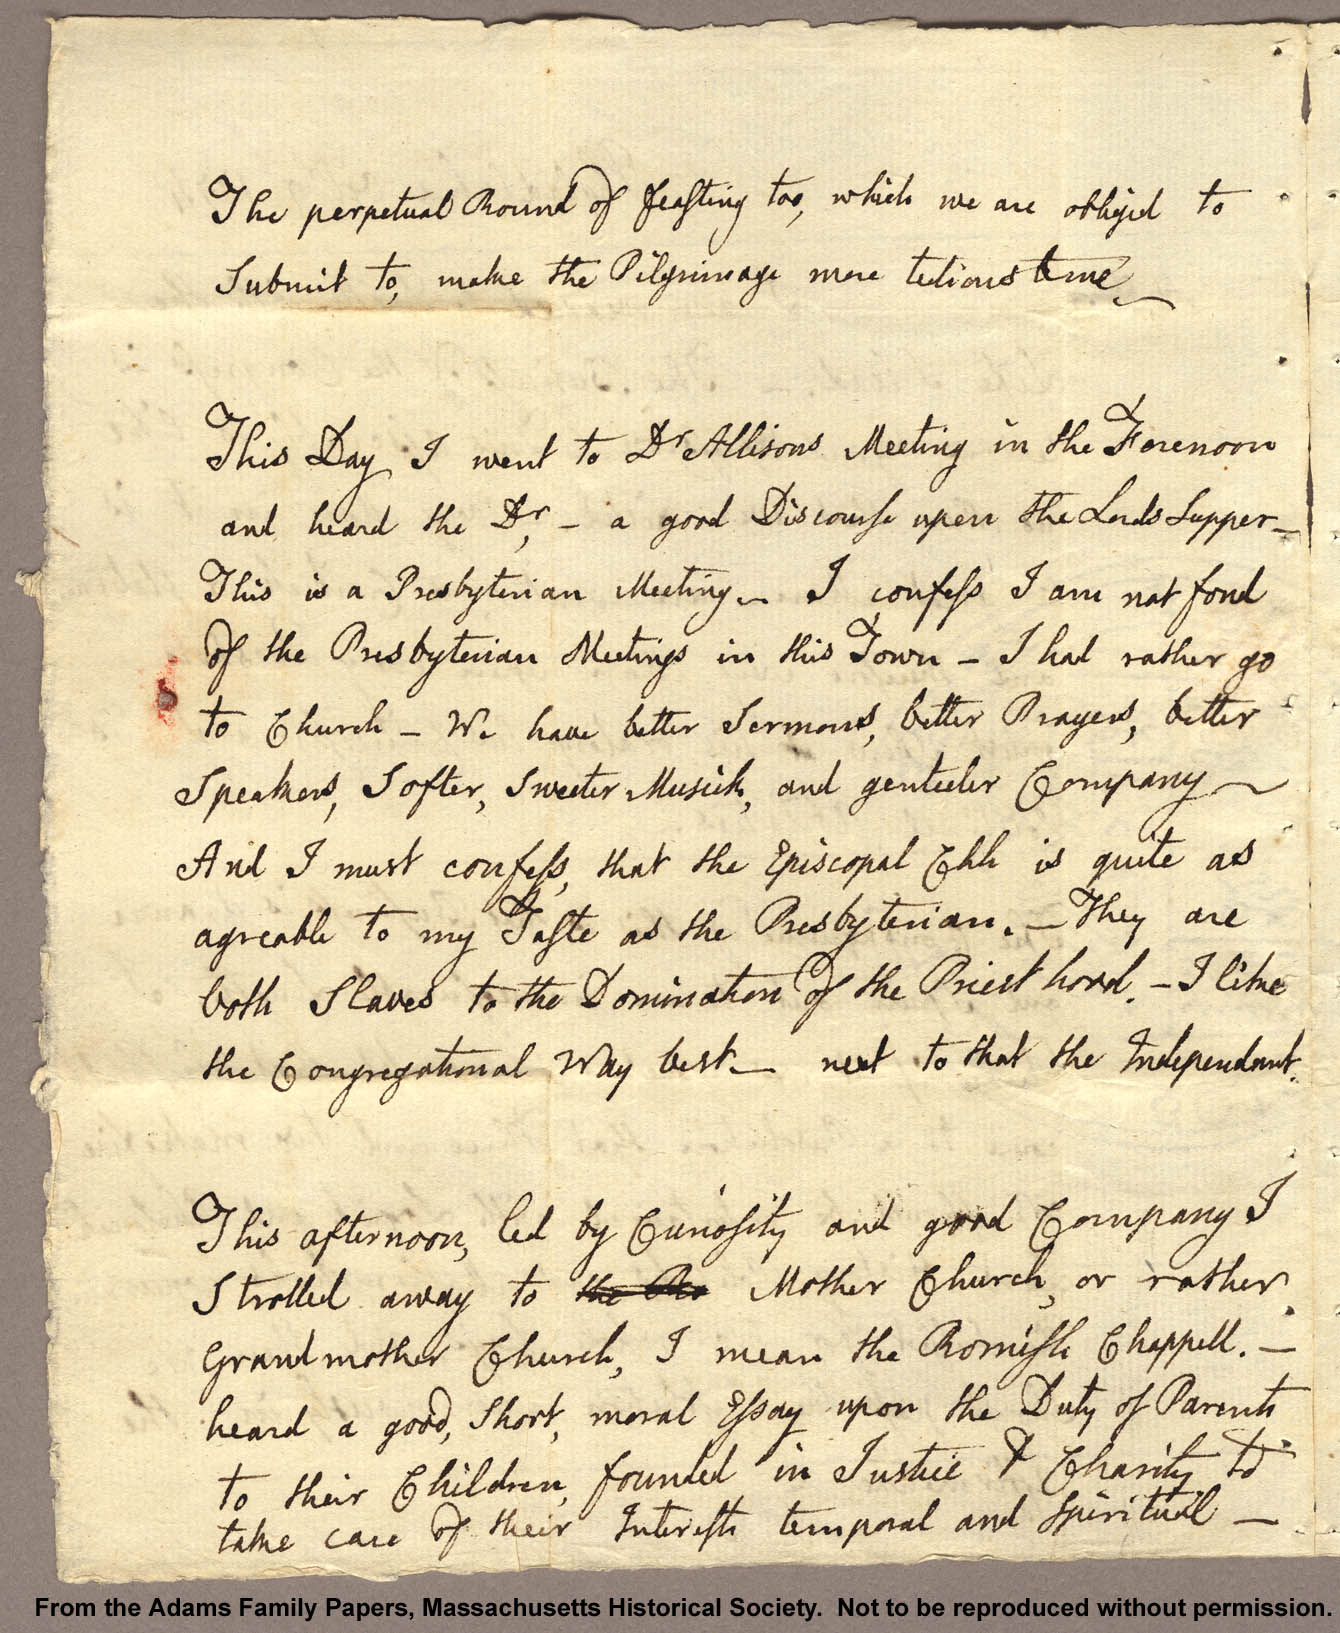 The perpetual Round of feasting too, which we are obliged to
Submit to, make the Pilgrimage more tedious to me
This Day I went to Dr Allisons Meeting in the Forenoon
and heard the Dr, – a good Discourse upon the Lords Supper –
This is a Presbyterian Meeting – I confess I am not fond
of the Presbyterian Meetings in this Town – I had rather go
to Church – We have better Sermons, better Prayers, better
Speakers, Softer, Sweeter Musick, and genteeler Company –
And I must confess, that the Episcopal Chh is quite as
agreable to my Taste as the Presbyterian. – They are
both Slaves to the Domination of the Priesthood. – I like
the Congregational Way best – next to that the Independant.
This afternoon, led by Curiosity and good Company I
Strolled away to the Ro Mother Church, or rather
Grandmother Church, I mean the Romish Chappell. –
heard a good, Short, moral Essay upon the Duty of Parents
to their Children, founded in Justice & Charity to
take care of their Interests temporal and Spiritual –
From the Adams Family Papers, Massachusetts Historical Society. Not to be reproduced without permission.